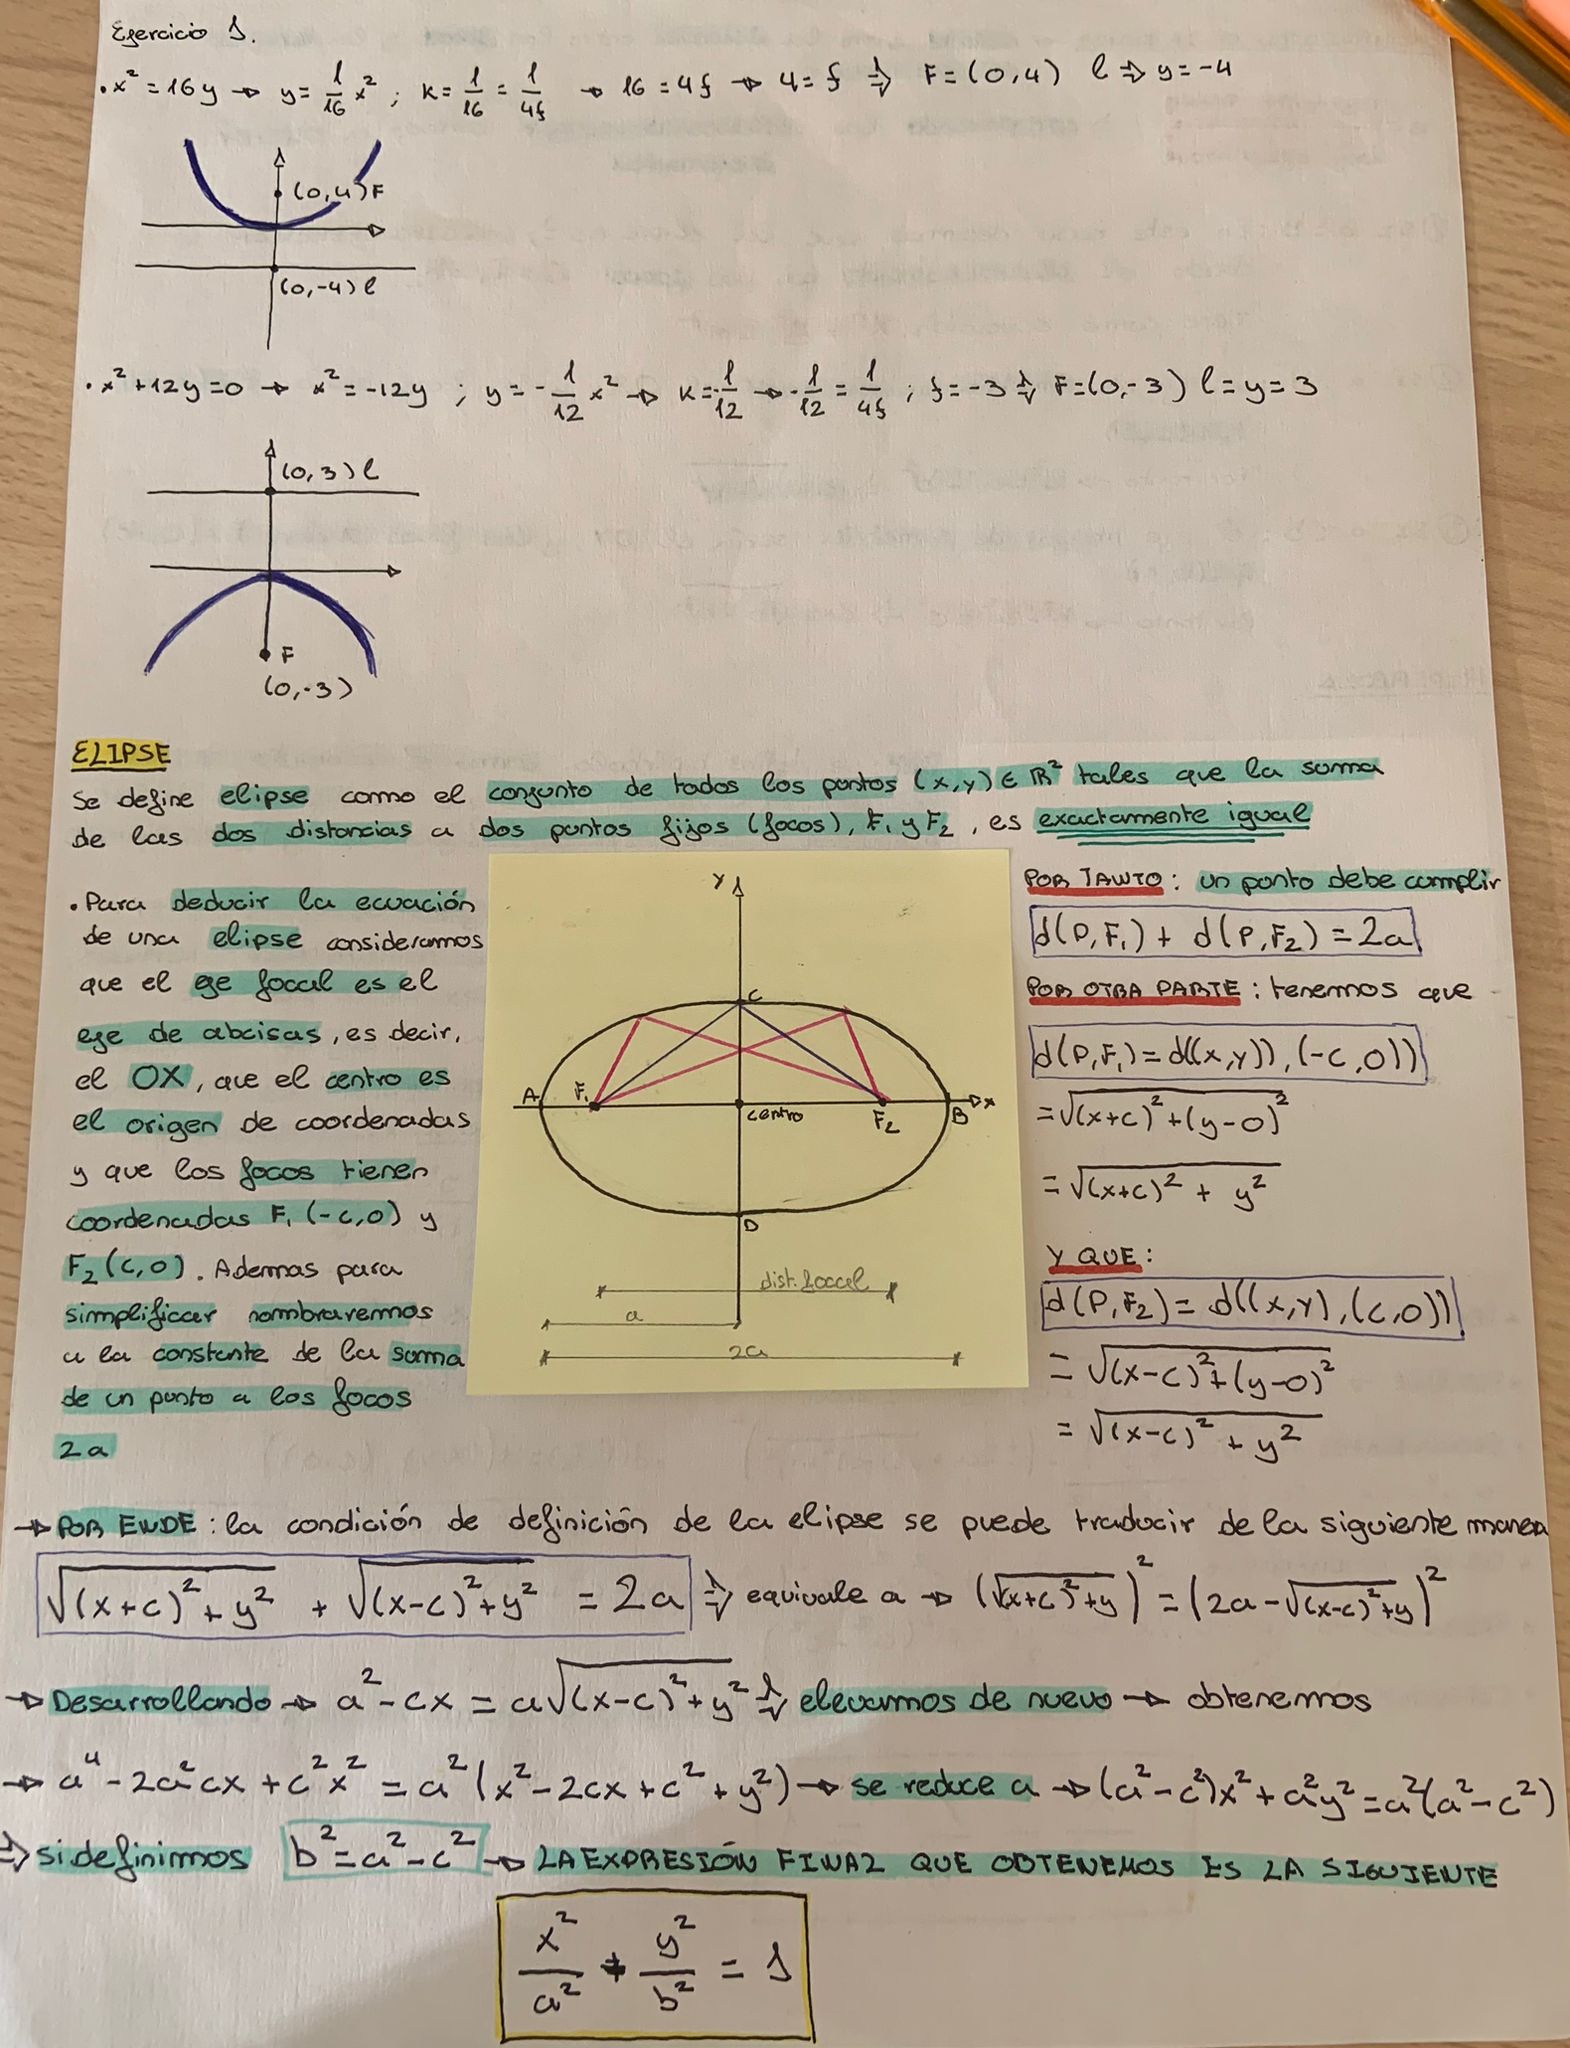 Ejercicio 1.
• x² = 16y → y = 1/16 x² ; K = 1/16 = 1/4f → 16 = 4f → 4 = f ⇒ F = (0,4) l ⇒ y = -4
(0,4) F
(0,-4) l
• x² + 12y = 0 → x² = -12y ; y = - 1/12 x² → K = - 1/12 → - 1/12 = 1/4f ; f = -3 ⇒ F = (0,-3) l = y = 3
(0,3) l
F
(0,-3)
ELIPSE
Se define elipse como el conjunto de todos los puntos (x,y) ∈ ℝ² tales que la suma
de las dos distancias a dos puntos fijos (focos), F₁ y F₂, es exactamente igual
• Para deducir la ecuación
de una elipse consideramos
que el eje focal es el
eje de abcisas, es decir,
el OX, que el centro es
el origen de coordenadas
y que los focos tienen
coordenadas F₁ (-c,0) y
F₂ (c,0). Ademas para
simplificar nombraremos
a la constante de la suma
de un punto a los focos
2a
Y
C
A
F₁
centro
F₂
B
x
D
dist. focal
a
2a
POR TANTO: un punto debe cumplir
d(P,F₁) + d(P,F₂) = 2a
POR OTRA PARTE: tenemos que
d(P,F₁) = d((x,y)), (-c,0))
= √((x+c)² + (y-0)²)
= √((x+c)² + y²)
Y QUE:
d(P,F₂) = d((x,y), (c,0))
= √((x-c)² + (y-0)²)
= √((x-c)² + y²)
→ POR ENDE: la condición de definición de la elipse se puede traducir de la siguiente manera
√((x+c)² + y²) + √((x-c)² + y²) = 2a ⇒ equivale a → (√((x+c)² + y))² = (2a - √((x-c)² + y))²
→ Desarrollando → a² - cx = a√((x-c)² + y²) ⇒ elevamos de nuevo → obtenemos
→ a⁴ - 2a²cx + c²x² = a² (x² - 2cx + c² + y²) → se reduce a → (a² - c²)x² + a²y² = a²(a² - c²)
⇒ si definimos b² = a² - c² → LA EXPRESIÓN FINAL QUE OBTENEMOS ES LA SIGUIENTE
x²/a² + y²/b² = 1